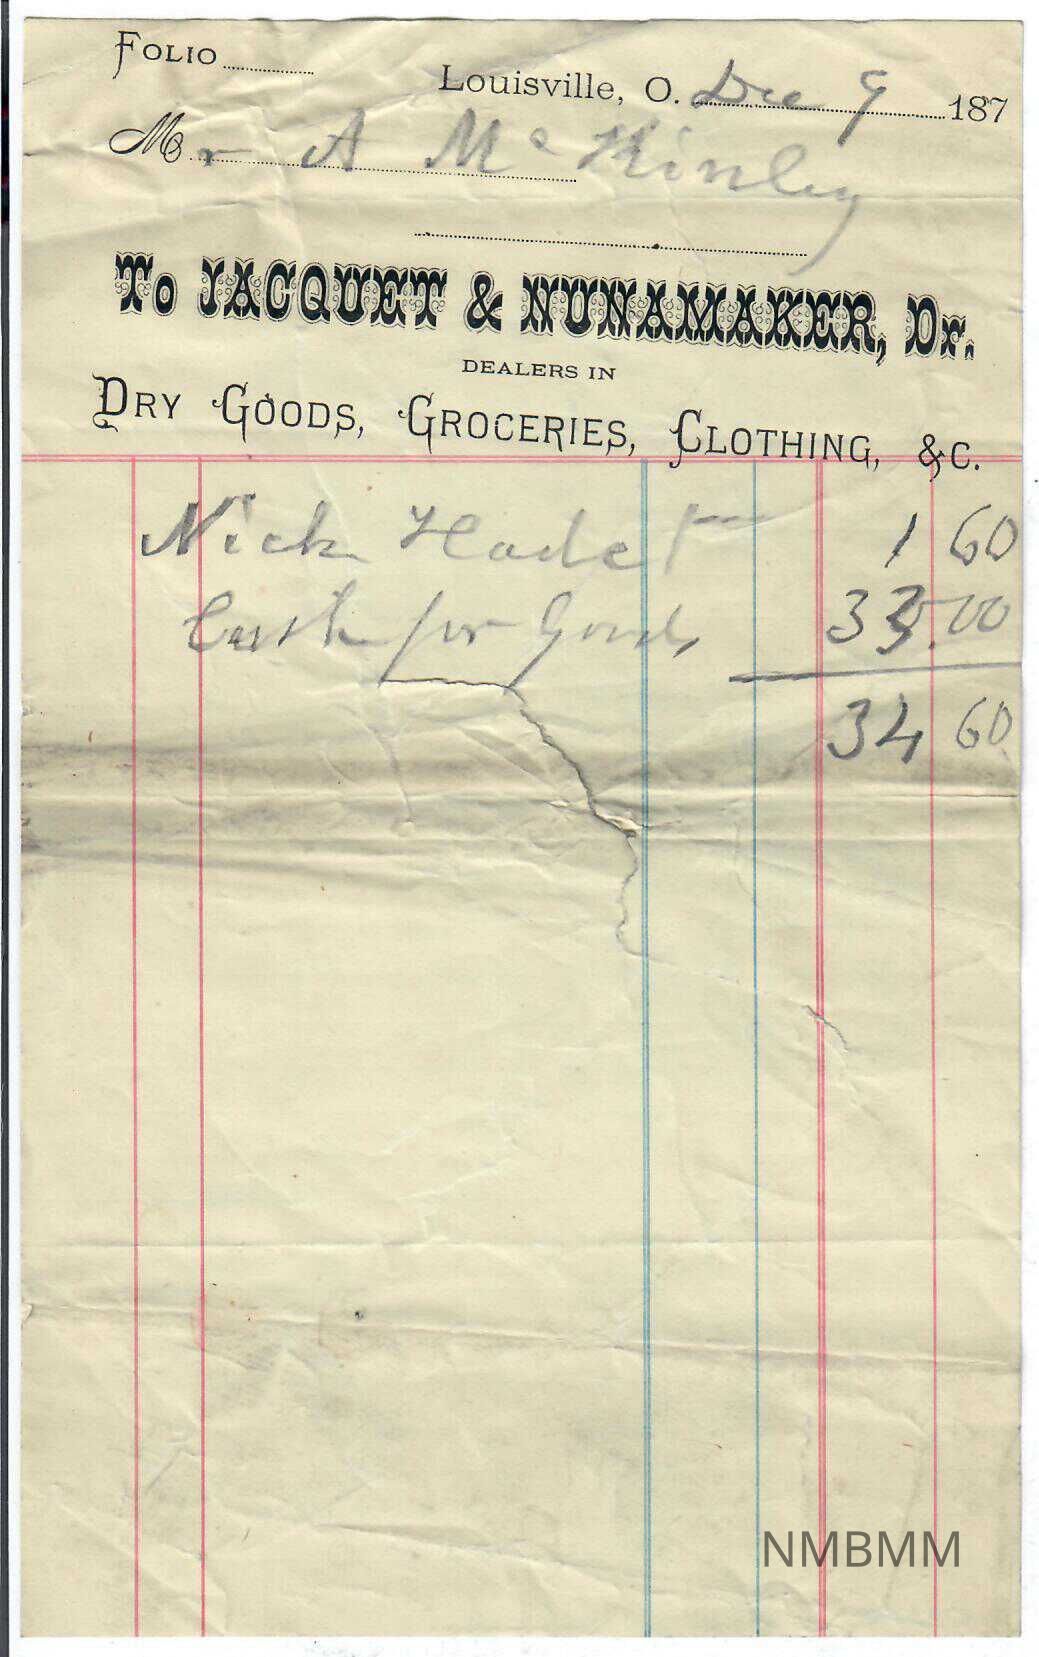 Folio
Louisville, O. Dec 9 187
Mr A Mc Kinley
To JACQUET & NUNAMAKER, Dr.
DEALERS IN
DRY GOODS, GROCERIES, CLOTHING, &C.
Nick 1 60
Cash for Goods 33.00
34 60
NMBMM